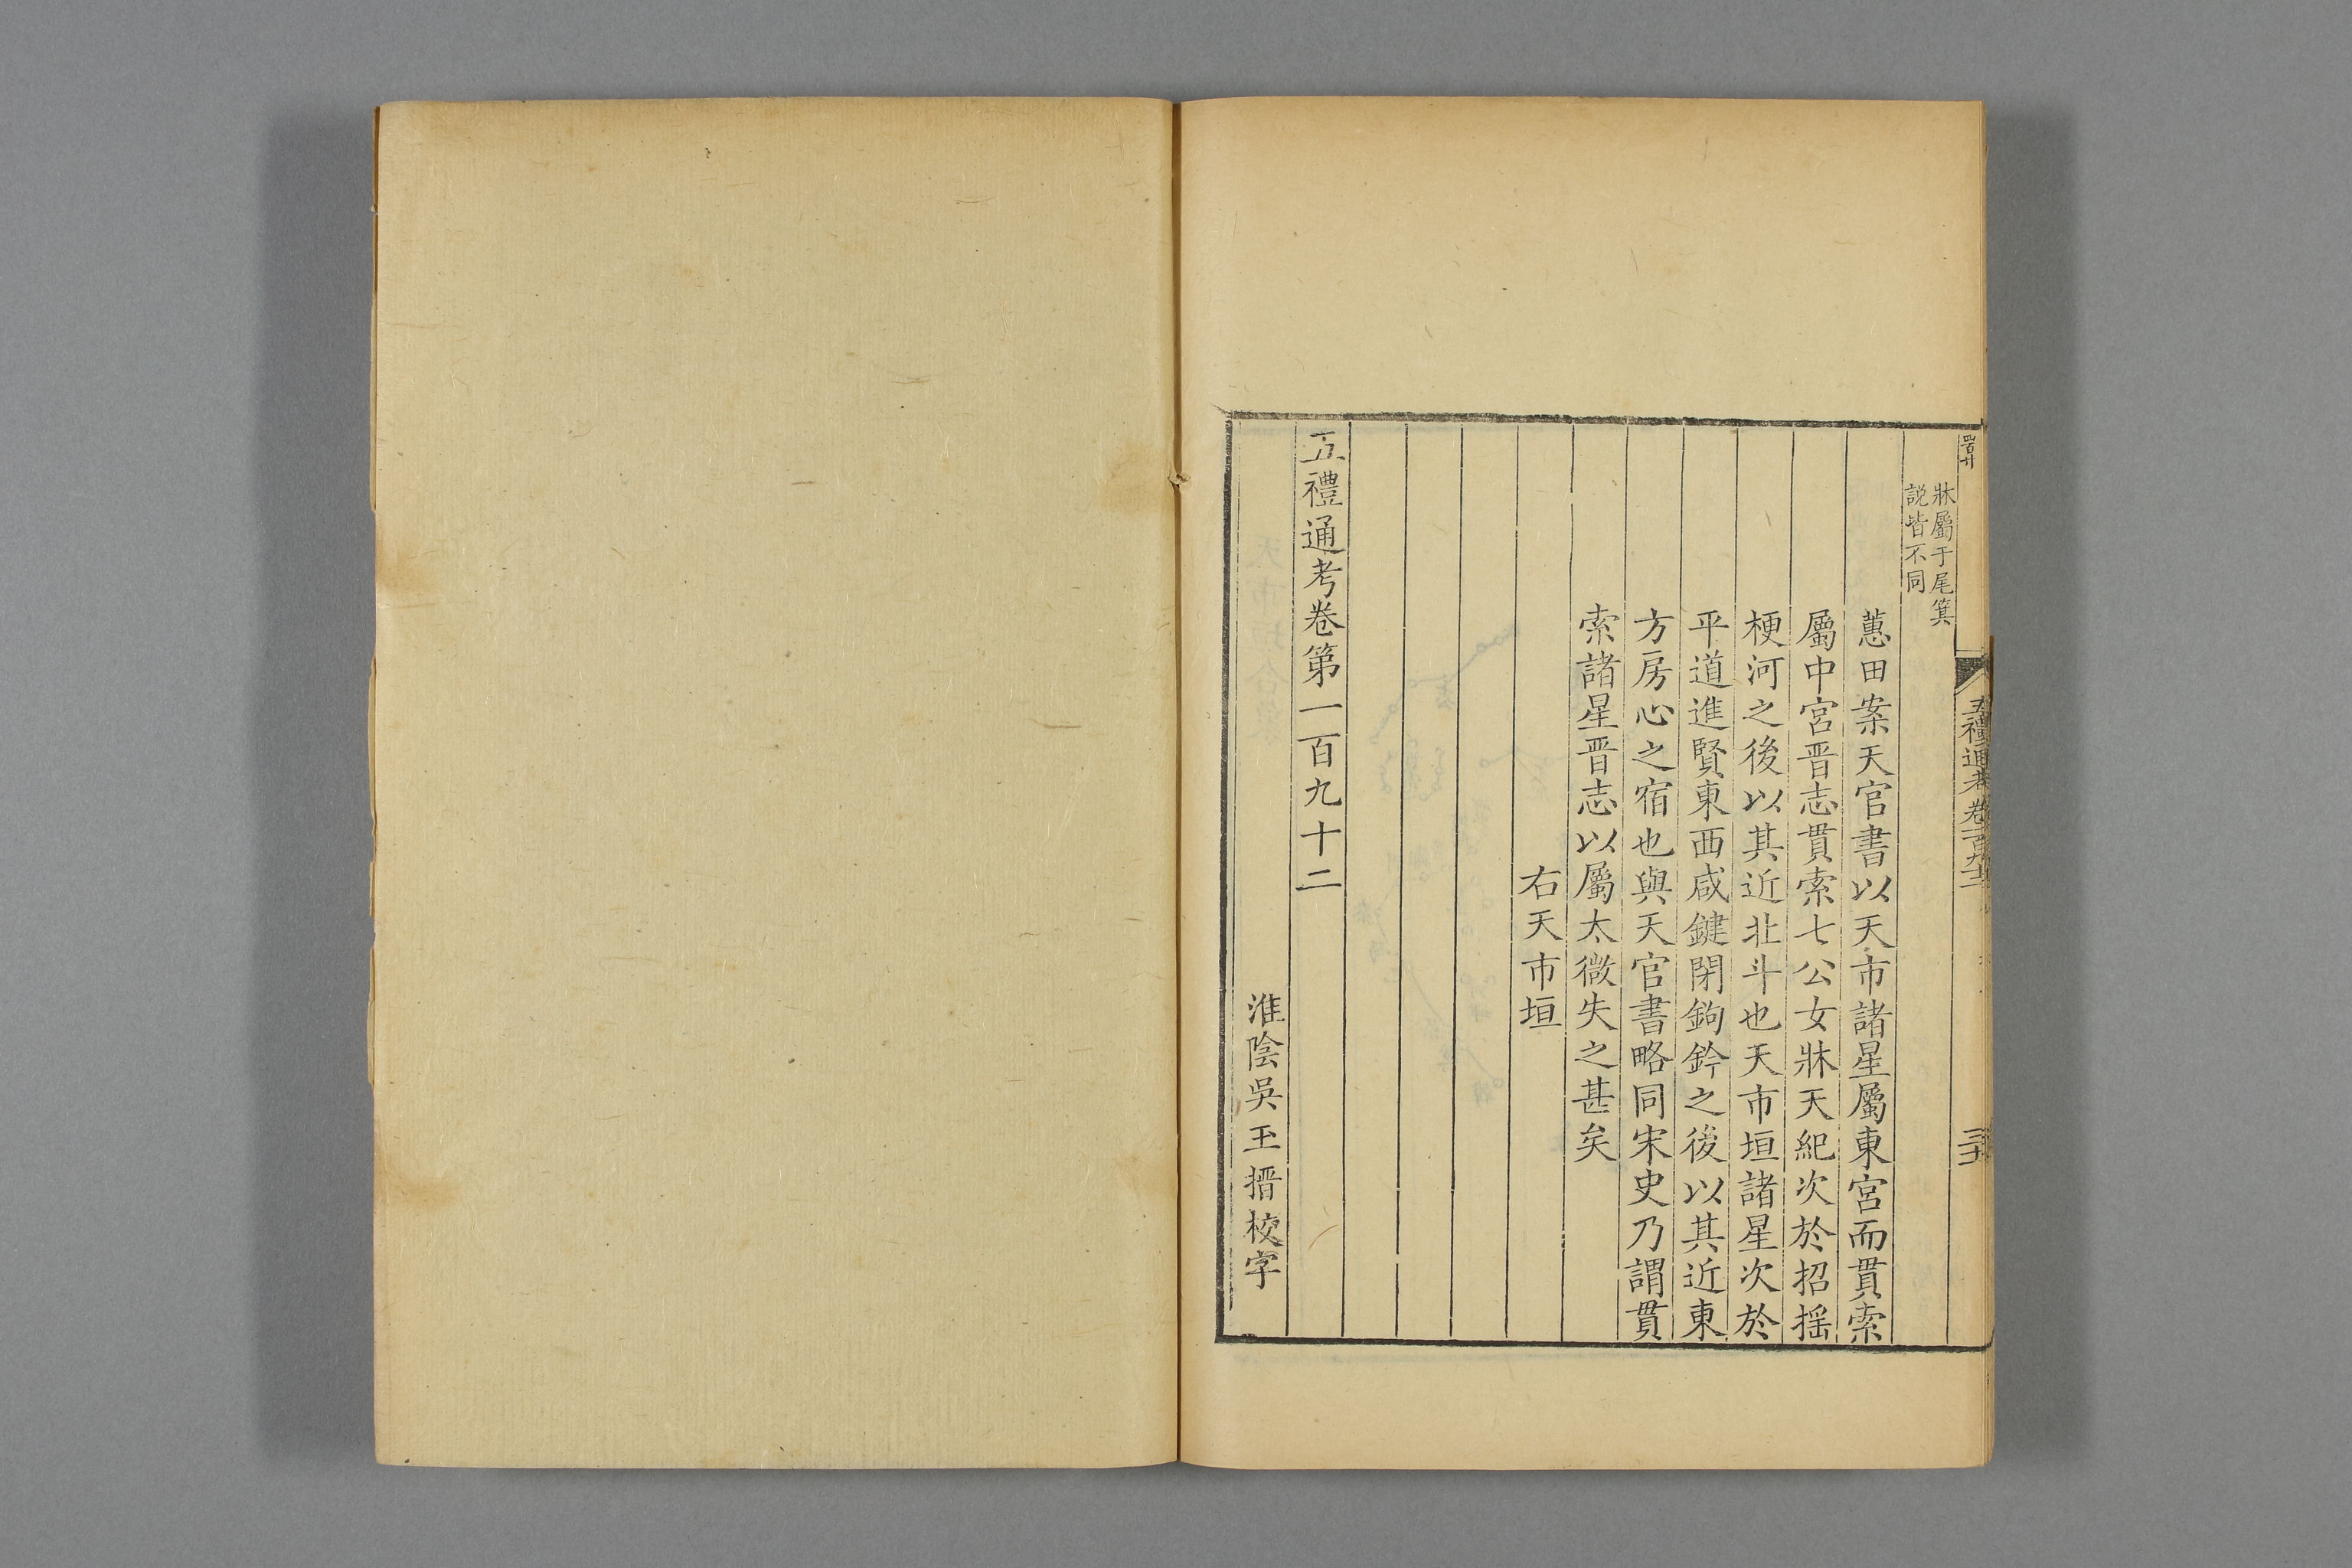 五禮通考卷一百九十二
牀屬于尾箕
說皆不同
蕙田案天官書以天市諸星屬東宮而貫索
屬中宮晋志貫索七公女牀天紀次於招搖
梗河之後以其近北斗也天市垣諸星次於
平道進賢東西咸鍵閉鉤鈐之後以其近東
方房心之宿也與天官書略同宋史乃謂貫
索諸星晋志以屬太微失之甚矣
右天市垣
五禮通考卷第一百九十二
淮陰吳玉搢校字